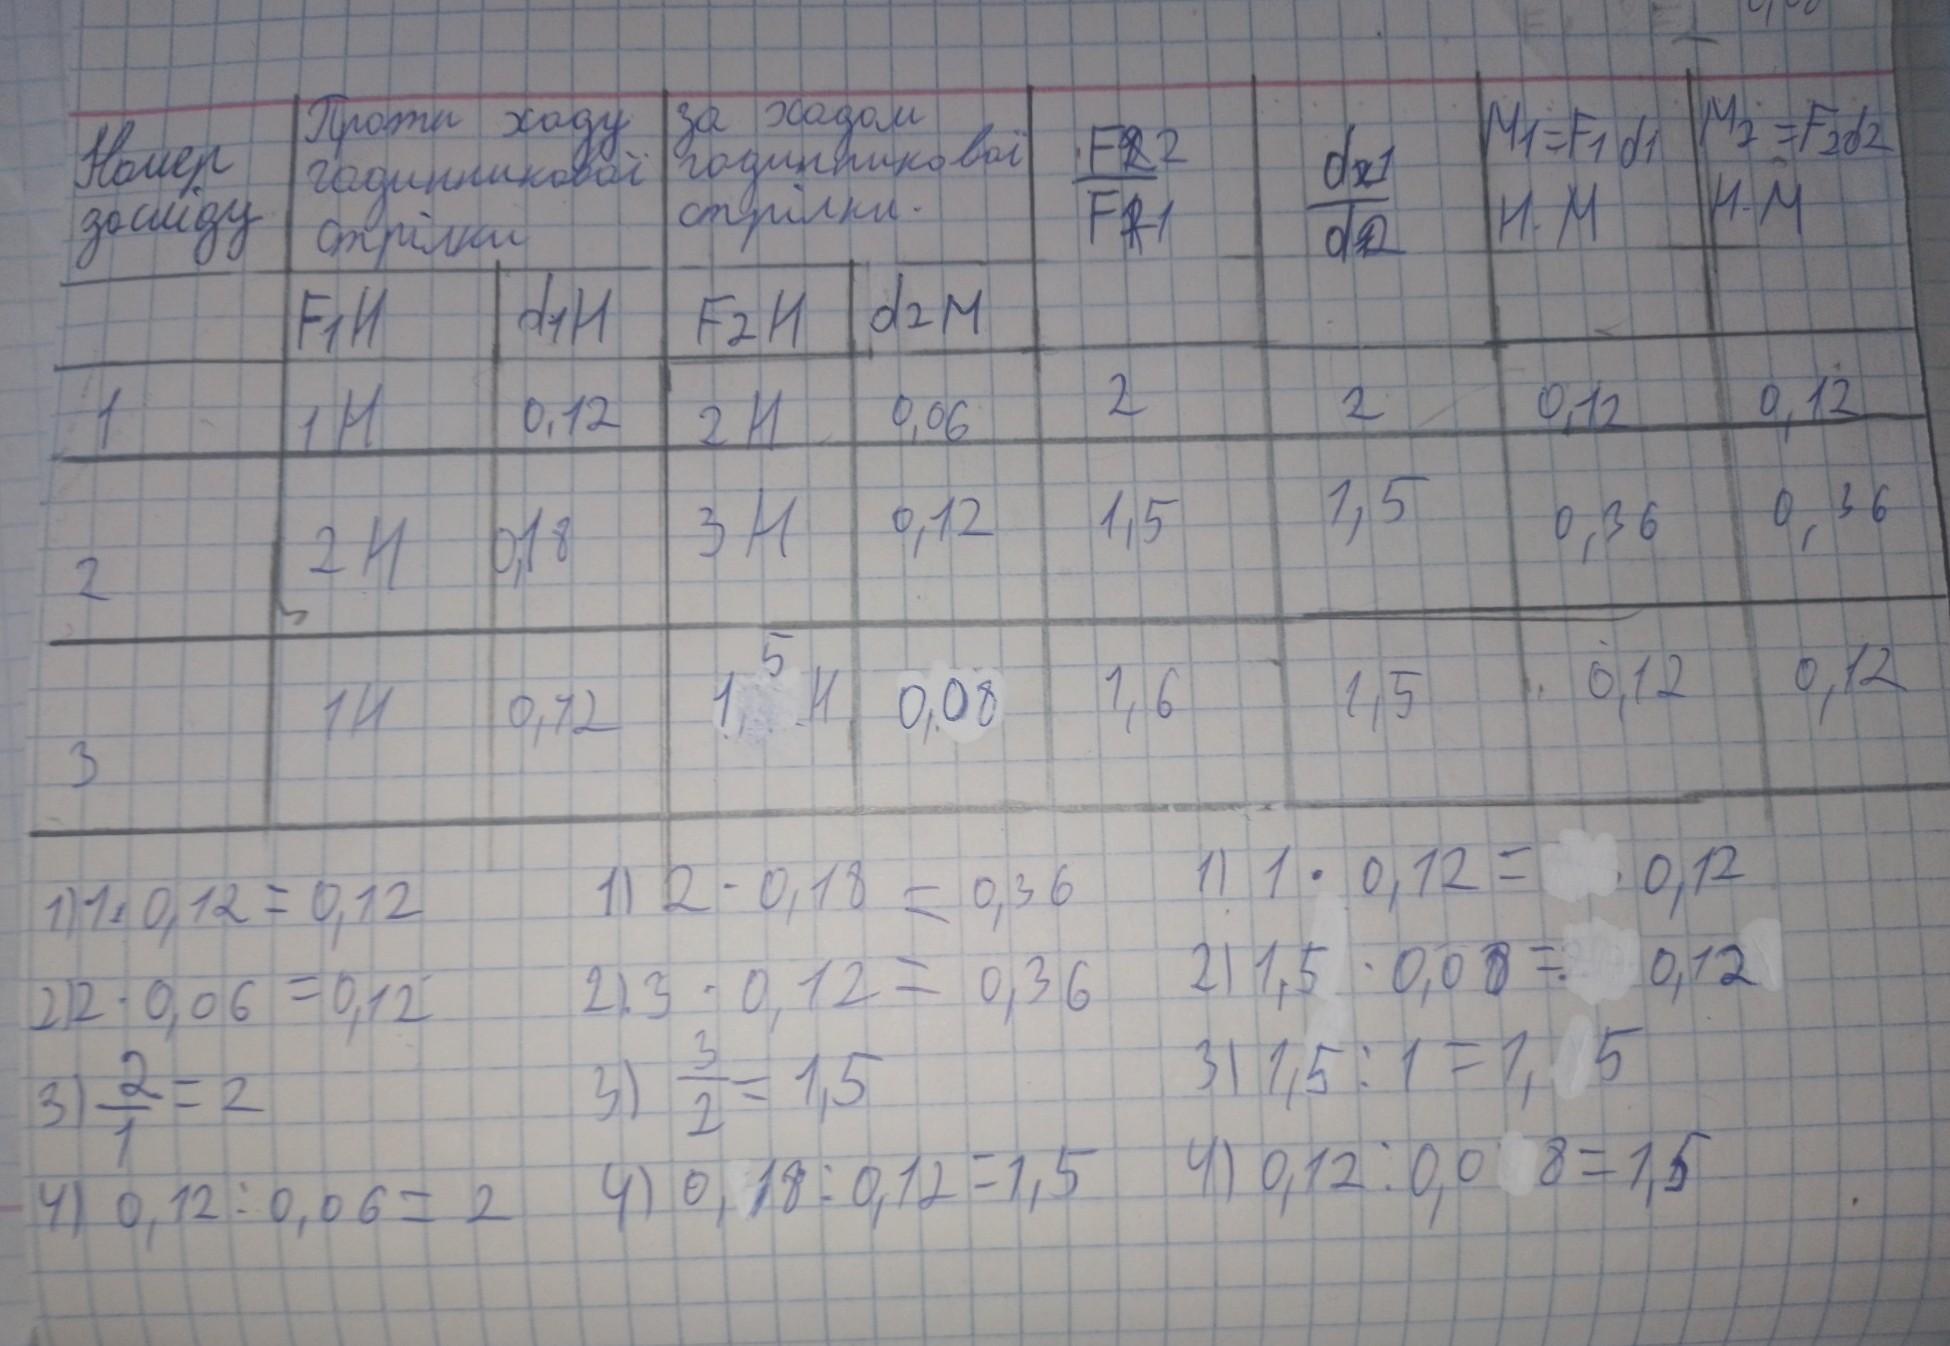 0,08
Номер досліду
Проти ходу годинникової стрілки
за ходом годинникової стрілки.
F2
F1
d1
d2
M1=F1d1 Н·М
M2=F2d2 Н·М
F1Н d1Н F2Н d2М
1 1Н 0,12 2Н 0,06 2 2 0,12 0,12
2 2Н 0,18 3Н 0,12 1,5 1,5 0,36 0,36
3 1Н 0,12 1,5 Н 0,08 1,6 1,5 0,12 0,12
1) 1·0,12=0,12
2) 2·0,06=0,12
3) 2/1=2
4) 0,12:0,06=2
1) 2·0,18=0,36
2) 3·0,12=0,36
3) 3/2=1,5
4) 0,18:0,12=1,5
1) 1·0,12=0,12
2) 1,5·0,08=0,12
3) 1,5:1=1,5
4) 0,12:0,08=1,5